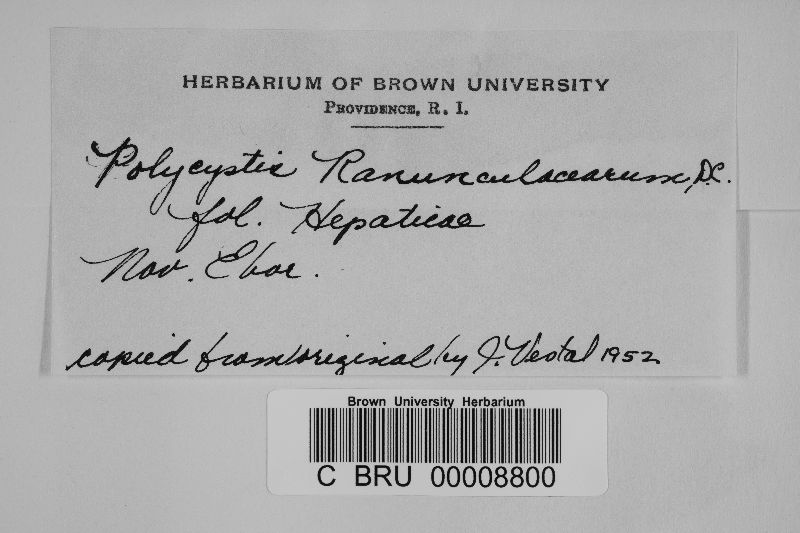 HERBARIUM OF BROWN UNIVERSITY
PROVIDENCE, R. I.
Polycystis Ranunculacearum, D.C.
fol. Hepaticae
Nov. Ebor.
copied from original by J. Vestal 1952
Brown University Herbarium
C BRU 00008800